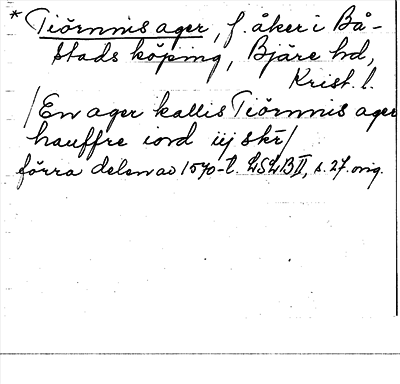 * Tiörnnis ager, f. åker i Bå-
stads köping, Bjäre hd,
Krist. l.
/En ager kallis Tiörnnis ager
hauffre iord iij skr̄/
förra delen av 1570-t. LSLB II, s. 27. orig.